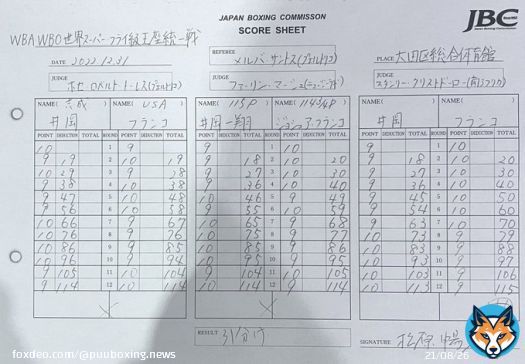 JAPAN BOXING COMMISSON
SCORE SHEET
JBC
WBA WBO 世界スーパーフライ級王座統一戦
DATE 2022.12.31
REFEREE メルバ・サントス(プエルトリコ)
PLACE 大田区総合体育館
JUDGE ホセ・ロベルト・トーレス(プエルトリコ)
JUDGE
JUDGE
NAME( 志成 ) NAME( USA ) NAME( 115P ) NAME( ) NAME( ) NAME( )
井岡 フランコ 井岡一翔 ジョシュア・フランコ 井岡 フランコ
POINT DEDUCTION TOTAL ROUND POINT DEDUCTION TOTAL POINT DEDUCTION TOTAL ROUND POINT DEDUCTION TOTAL POINT DEDUCTION TOTAL ROUND POINT DEDUCTION TOTAL
10 1 9 9 1 10 9 1 10
9 19 2 10 19 9 18 2 10 20 9 18 2 10 20
10 29 3 9 28 9 27 3 10 30 9 27 3 10 30
9 38 4 10 38 9 36 4 10 40 9 36 4 10 40
9 47 5 10 48 10 46 5 9 49 9 45 5 10 50
9 56 6 10 58 9 55 6 10 59 9 54 6 10 60
10 66 7 9 67 10 65 7 9 68 9 63 7 10 70
10 76 8 9 76 10 75 8 9 77 10 73 8 9 79
10 86 9 9 85 10 85 9 9 86 10 83 9 9 88
10 96 10 9 94 10 95 10 9 95 10 93 10 9 97
9 105 11 10 104 9 104 11 10 105 10 103 11 9 106
9 114 12 10 114 10 114 12 9 114 10 113 12 9 115
RESULT 引分け
SIGNATURE
foxdeo.com/@puuboxing.news
21/08/26